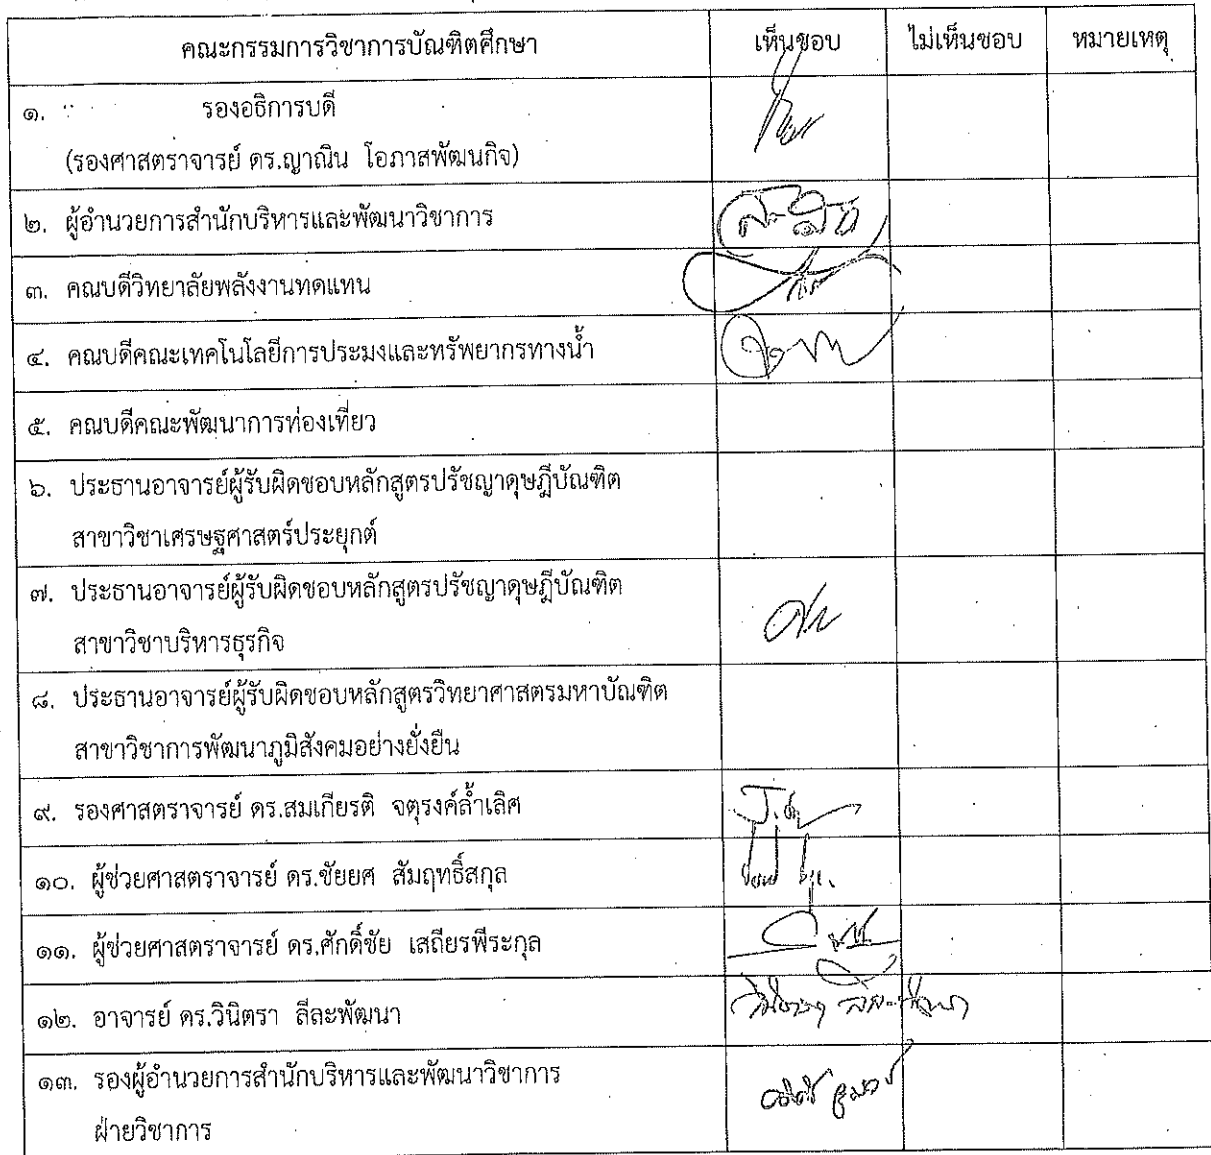 คณะกรรมการวิชาการบัณฑิตศึกษา เห็นชอบ ไม่เห็นชอบ หมายเหตุ
๑. รองอธิการบดี
(รองศาสตราจารย์ ดร.ญาณิน โอภาสพัฒนกิจ)
๒. ผู้อำนวยการสำนักบริหารและพัฒนาวิชาการ
๓. คณบดีวิทยาลัยพลังงานทดแทน
๔. คณบดีคณะเทคโนโลยีการประมงและทรัพยากรทางน้ำ
๕. คณบดีคณะพัฒนาการท่องเที่ยว
๖. ประธานอาจารย์ผู้รับผิดชอบหลักสูตรปรัชญาดุษฎีบัณฑิต
สาขาวิชาเศรษฐศาสตร์ประยุกต์
๗. ประธานอาจารย์ผู้รับผิดชอบหลักสูตรปรัชญาดุษฎีบัณฑิต
สาขาวิชาบริหารธุรกิจ
๘. ประธานอาจารย์ผู้รับผิดชอบหลักสูตรวิทยาศาสตรมหาบัณฑิต
สาขาวิชาการพัฒนาภูมิสังคมอย่างยั่งยืน
๙. รองศาสตราจารย์ ดร.สมเกียรติ จตุรงค์ล้ำเลิศ
๑๐. ผู้ช่วยศาสตราจารย์ ดร.ชัยยศ สัมฤทธิ์สกุล
๑๑. ผู้ช่วยศาสตราจารย์ ดร.ศักดิ์ชัย เสถียรพีระกุล
๑๒. อาจารย์ ดร.วินิตรา ลีละพัฒนา
๑๓. รองผู้อำนวยการสำนักบริหารและพัฒนาวิชาการ
ฝ่ายวิชาการ